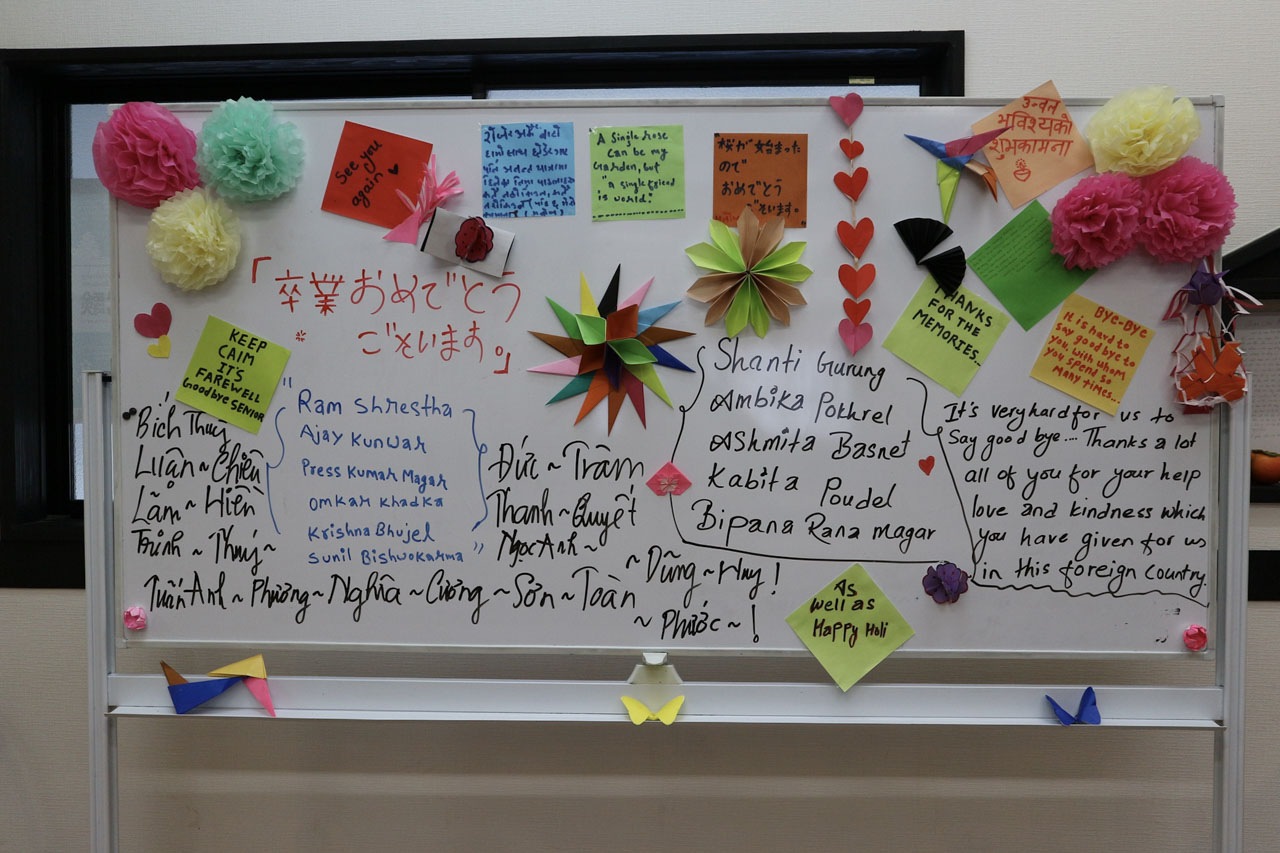 See you
again
A Single rose
can be my
Garden, but
"a single friend
is world."
桜が始まった
ので
おめでとう
ございます。
उन्नत
भविष्यको
शुभकामना
「卒業おめでとう
ございます。」
KEEP
CALM
IT'S
FAREWELL
Goodbye SENIOR
THANKS
FOR THE
MEMORIES...
BYE-BYE
It is hard to
say goodbye to
you, with whom
you spend so
many times...
Bích Thuỳ
Luận ~ Chiến
Lãm ~ Hiền
Trinh ~ Thuý ~
"Ram Shrestha
Ajay Kunwar
Press Kumar Magar
Omkar Khadka
Krishna Bhujel
Sunil Bishwokarma"
Đức ~ Trâm
Thanh ~ Quyết
Ngọc Anh ~
~ Dũng ~ Huy!
Tuấn Anh ~ Phương ~ Nghĩa ~ Cương ~ Sơn ~ Toàn
~ Phước ~!
Shanti Gurung
Ambika Pokhrel
Ashmita Basnet
Kabita Poudel
Bipana Rana magar
It's very hard for us to
Say good bye.... Thanks a lot
all of you for your help
love and kindness which
you have given for us
in this foreign country.
As
well as
Happy Holi